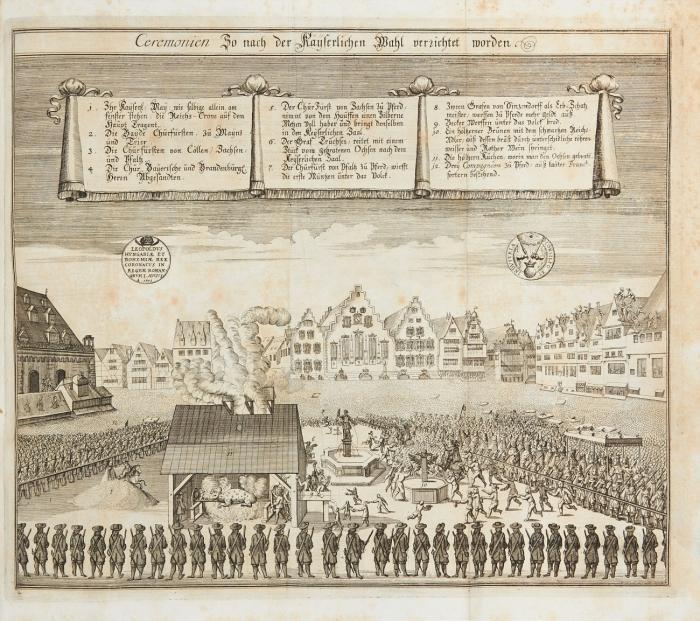 Ceremonien So nach der Kayserlichen Wahl verrichtet worden.
1. Ihr Kayserl: May: wie selbige allein am
fenster stehen, die Reichs-Cron auf dem
Haupt Tragent.
2. Die Bayde Chürfürsten zu Mayns
und Trier
3. Die Chürfürsten von Cöllen, Sachsen
und Pfalz
4. Die Chür Bayerische und Brandenburg
Herrn Abgesandten.
5. Der Chür Fürst von Sachsen zu Pferd,
nimmt von dem Hauffen einen Silberne
Meten voll haber und bringt denselben
in den Keyserlichen Saal.
6. Der Graf Truchses, reitet mit einem
Stück vom gebratenen Ochsen nach dem
Keyserlichen Saal.
7. Der Chürfürst von Pfalz zu Pferd, wirfft
die erste Müntzen unter das Volck.
8. Ihren Grafen von Sintzendorff als Erb-Schatz
meister, werffen zu Pferde mehr geldt auß
9. Becker Werffen unter das Volck brod.
10. Ein höltzerner Brünen mit dem schwartzen Reichs
Adler, auß dessen brust durch unterschidliche rohren
weisser und Rother Wein springt.
11. Die höltzern Küchen, worin man den Ochsen gebrate.
12. Drey Compagnien zu Pferd, auß lauter Franck
fortern bestehend.
LEOPOLDVS
HVNGARIÆ ET
BOHEMIÆ REX
CORONATVS IN
REGEM ROMAN